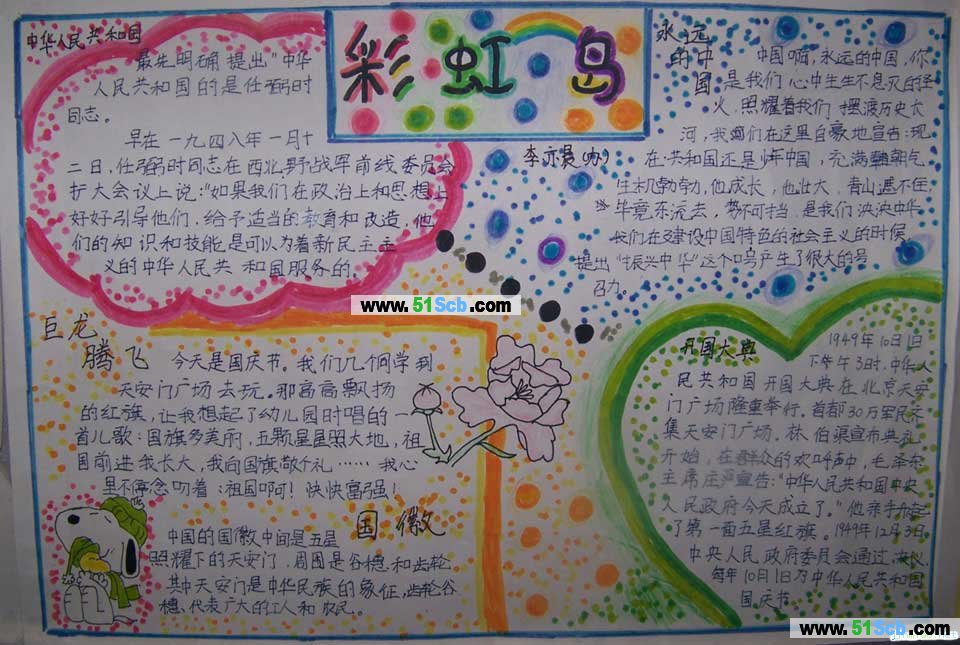 彩虹岛
李亦晨(办)
中华人民共和国
最先明确提出"中华
人民共和国的是任弼时
同志。
早在一九四八年一月十
二日,任弼时同志在西北野战军前线委员会
扩大会议上说:"如果我们在政治上和思想上
好好引导他们,给予适当的教育和改造,他
们的知识和技能是可以为着新民主主
义的中华人民共和国服务的
永远
的中
国
中国啊,永远的中国,你
是我们心中生生不息灭的圣
火,照耀着我们摆渡历史长
河,我们在这里自豪地宣告:现
在共和国还是少年中国,充满朝气
生机勃勃,他成长,他壮大,青山遮不住,
毕竟东流去,势不可挡,是我们泱泱中华
我们在建设中国特色的社会主义的时候
提出"振兴中华"这个口号产生了很大的号
召力。
www.51Scb.com
巨龙
腾飞
今天是国庆节。我们几个同学到
天安门广场去玩。那高高飘扬
的红旗,让我想起了幼儿园时唱的一
首儿歌:国旗多美丽,五颗星星照大地,祖
国前进我长大,我向国旗敬个礼……我心
里不停念叨着:祖国啊!快快富强!
国徽
中国的国徽中间是五星
照耀下的天安门,周围是谷穗和齿轮
其中天安门是中华民族的象征,齿轮谷
穗、代表广大的工人和农民。
开国大典
1949年10月1日
下午3时,中华人
民共和国开国大典在北京天安
门广场隆重举行。首都30万军民齐
集天安门广场。林伯渠宣布典礼
开始,在群众的欢呼声中,毛泽东
主席庄严宣告:"中华人民共和国中央
人民政府今天成立了。"他亲手升起
了第一面五星红旗。1949年12月3日,
中央人民政府委员会通过决议,
每年10月1日为中华人民共和国
国庆节。
www.51Scb.com